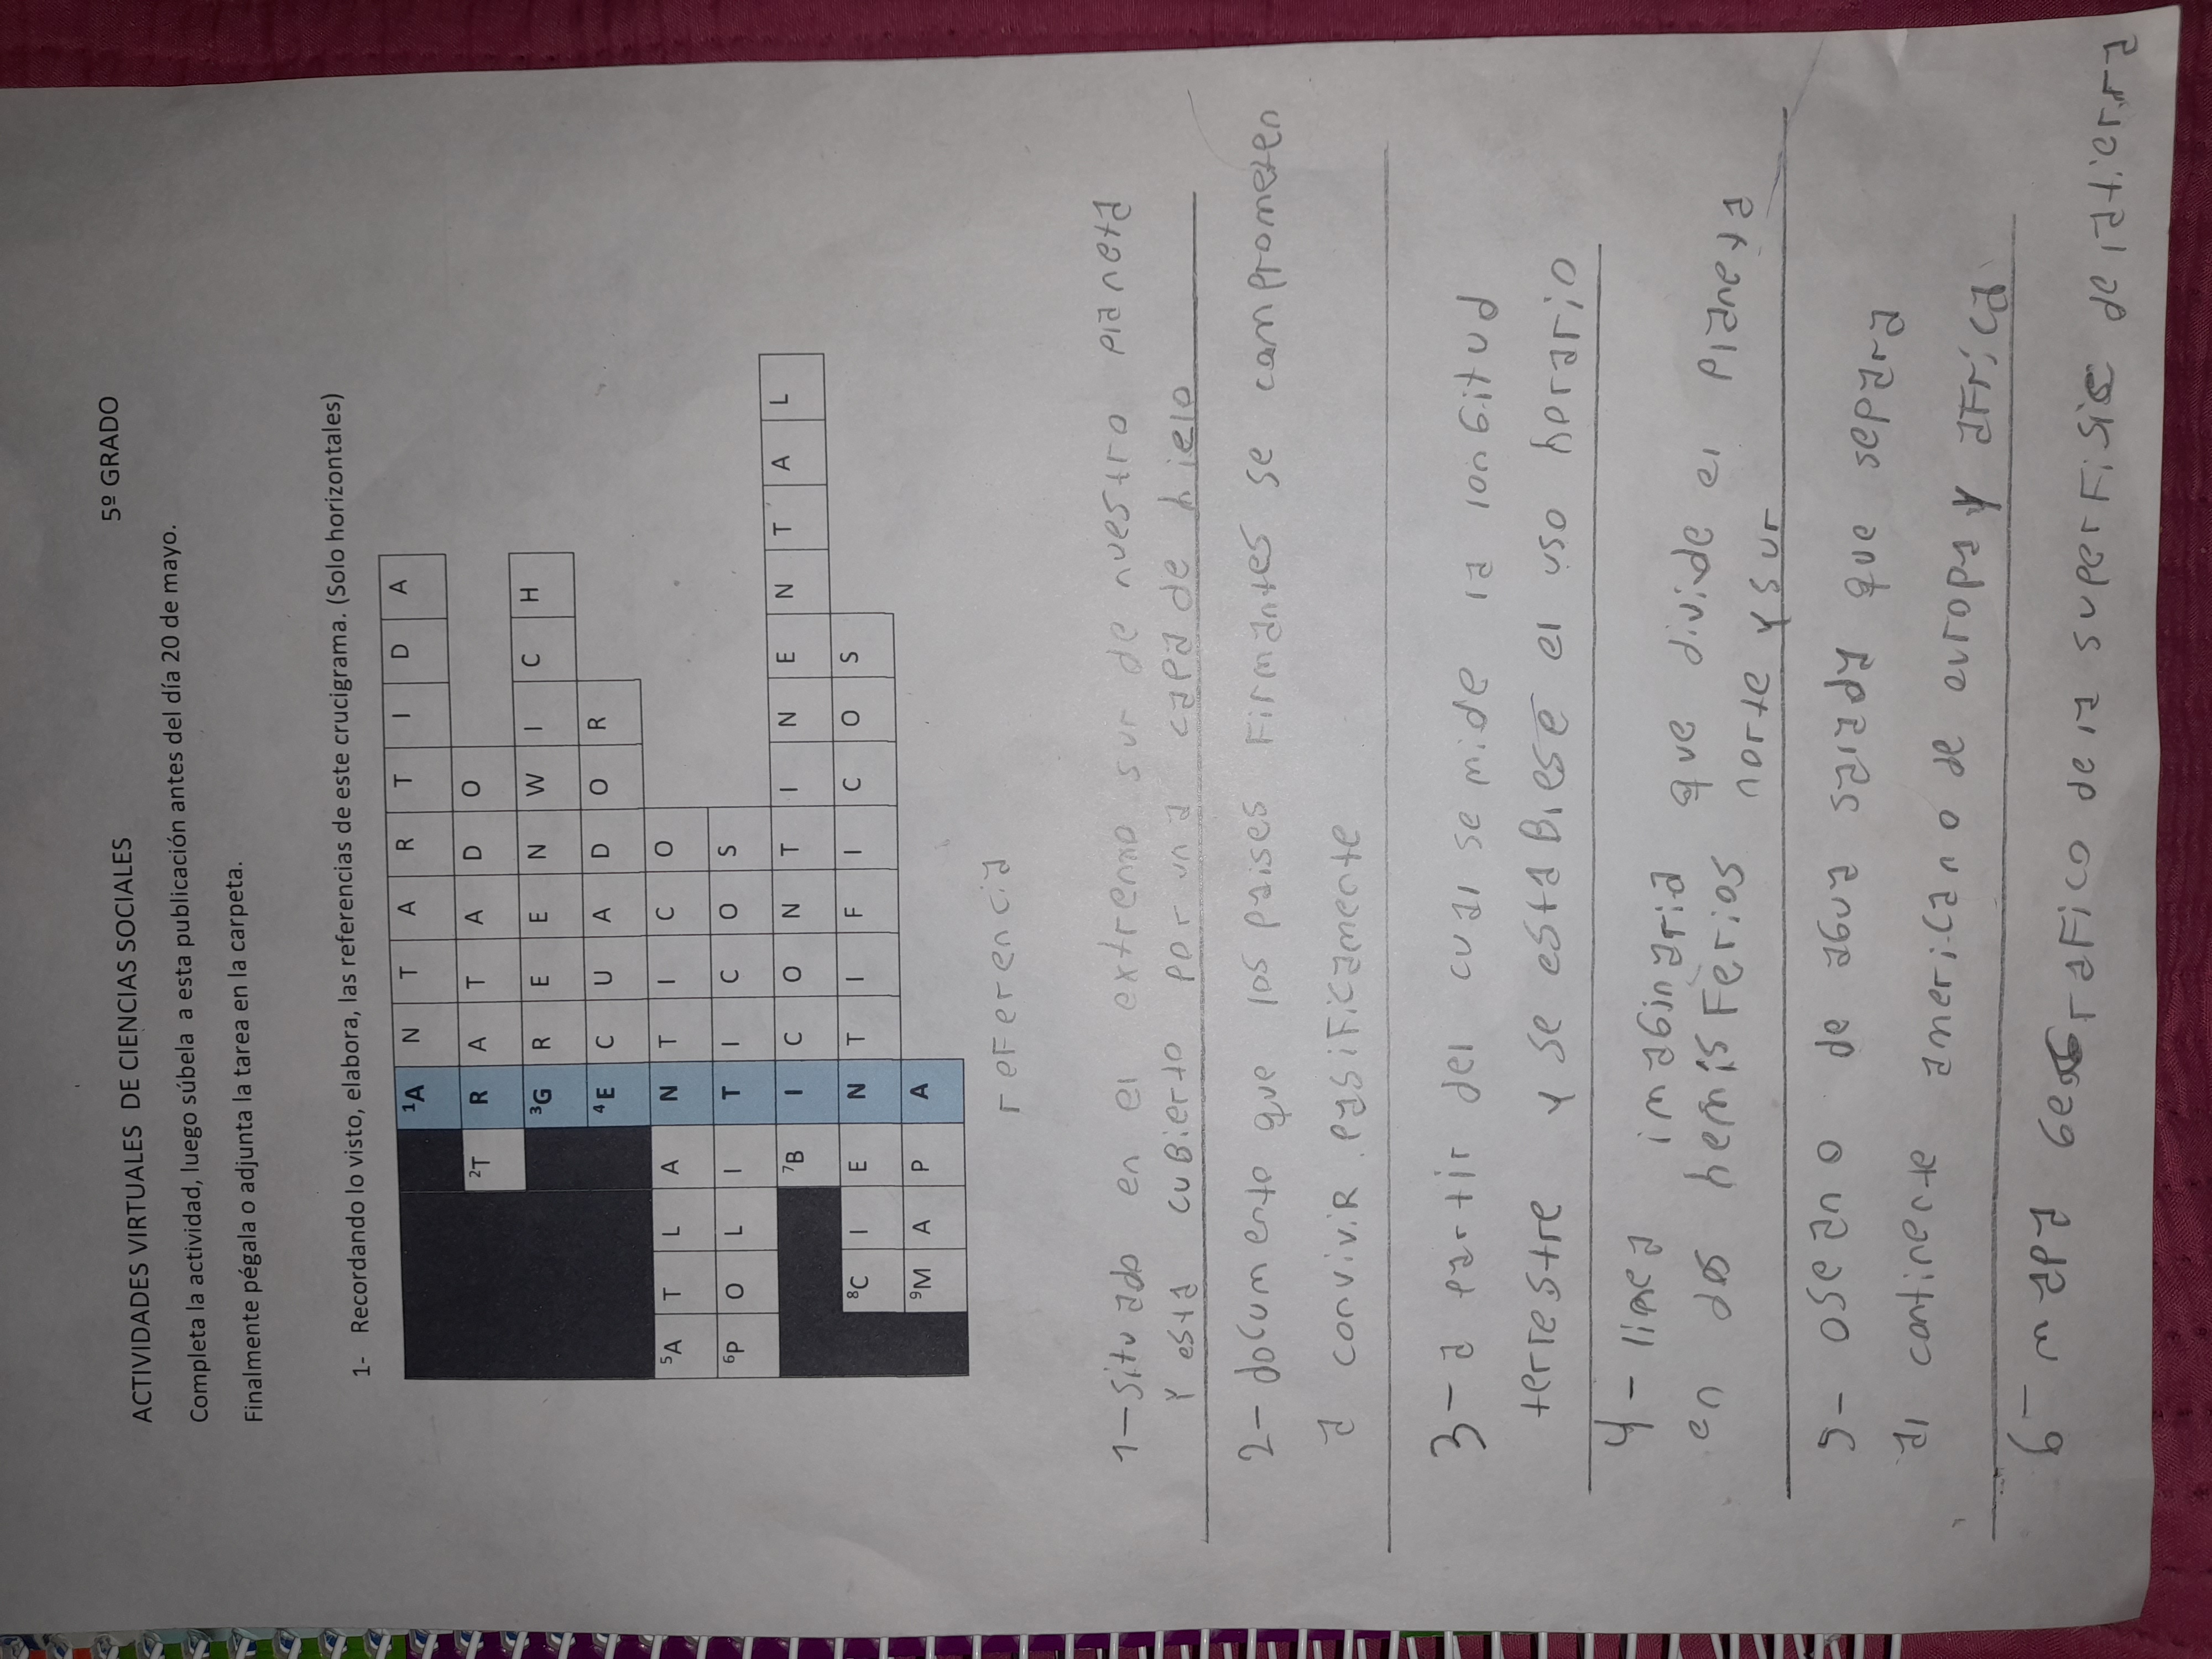 ACTIVIDADES VIRTUALES DE CIENCIAS SOCIALES 5º GRADO
Completa la actividad, luego súbela a esta publicación antes del día 20 de mayo.
Finalmente pégala o adjunta la tarea en la carpeta.
1- Recordando lo visto, elabora, las referencias de este crucigrama. (Solo horizontales)
1A N T A R T I D A
2T R A T A D O
3G R E E N W I C H
4E C U A D O R
5A T L A N T I C O
6P O L I T I C O S
7B I C O N T I N E N T A L
8C I E N T I F I C O S
9M A P A
referencia
1-situado en el extremo sur de nuestro planeta
y esta cubierto por una capa de hielo
2-documento que los paises firmantes se comprometen
a convivir pasificamente
3-a partir del cual se mide la longitud
terrestre y se establese el uso horario
4-linea imaginaria que divide el planeta
en dos hemisferios norte y sur
5-oseano de agua salady que separa
al continente americano de europa y africa
6-mapa geografico de la superfisie de la tierra